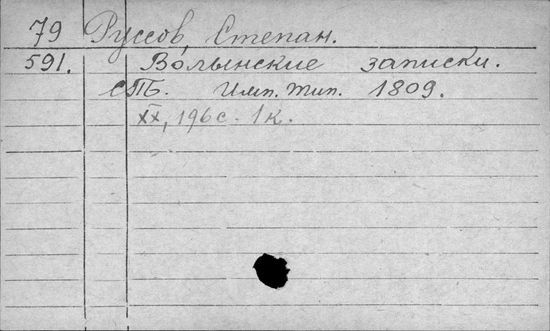 79 Руссов, Степан.
591. Волынские записки.
СПб. Имп. тип. 1809.
XX, 196 с. 1 к.